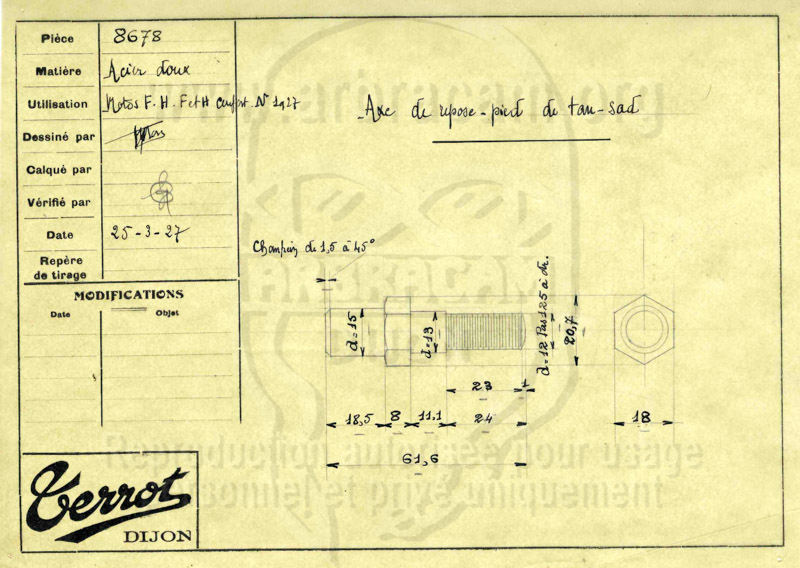 Pièce 8678
Matière Acier doux
Utilisation Motos F. H. F et H Confort N 1927
Dessiné par
Calqué par
Vérifié par
Date 25-3-27
Repère
de tirage
MODIFICATIONS
Date Objet
Axe de repose-pied de tan-sad
Chanfrein de 1,5 à 45°
d=15
d=13
d=12 Pas 125 à dr.
20,7
23 1
18,5 8 11,1 24
18
61,6
Terrot
DIJON
www.arbracam.org
ARBRACAM
DIJON
Reproduction autorisée pour usage
personnel et privé uniquement